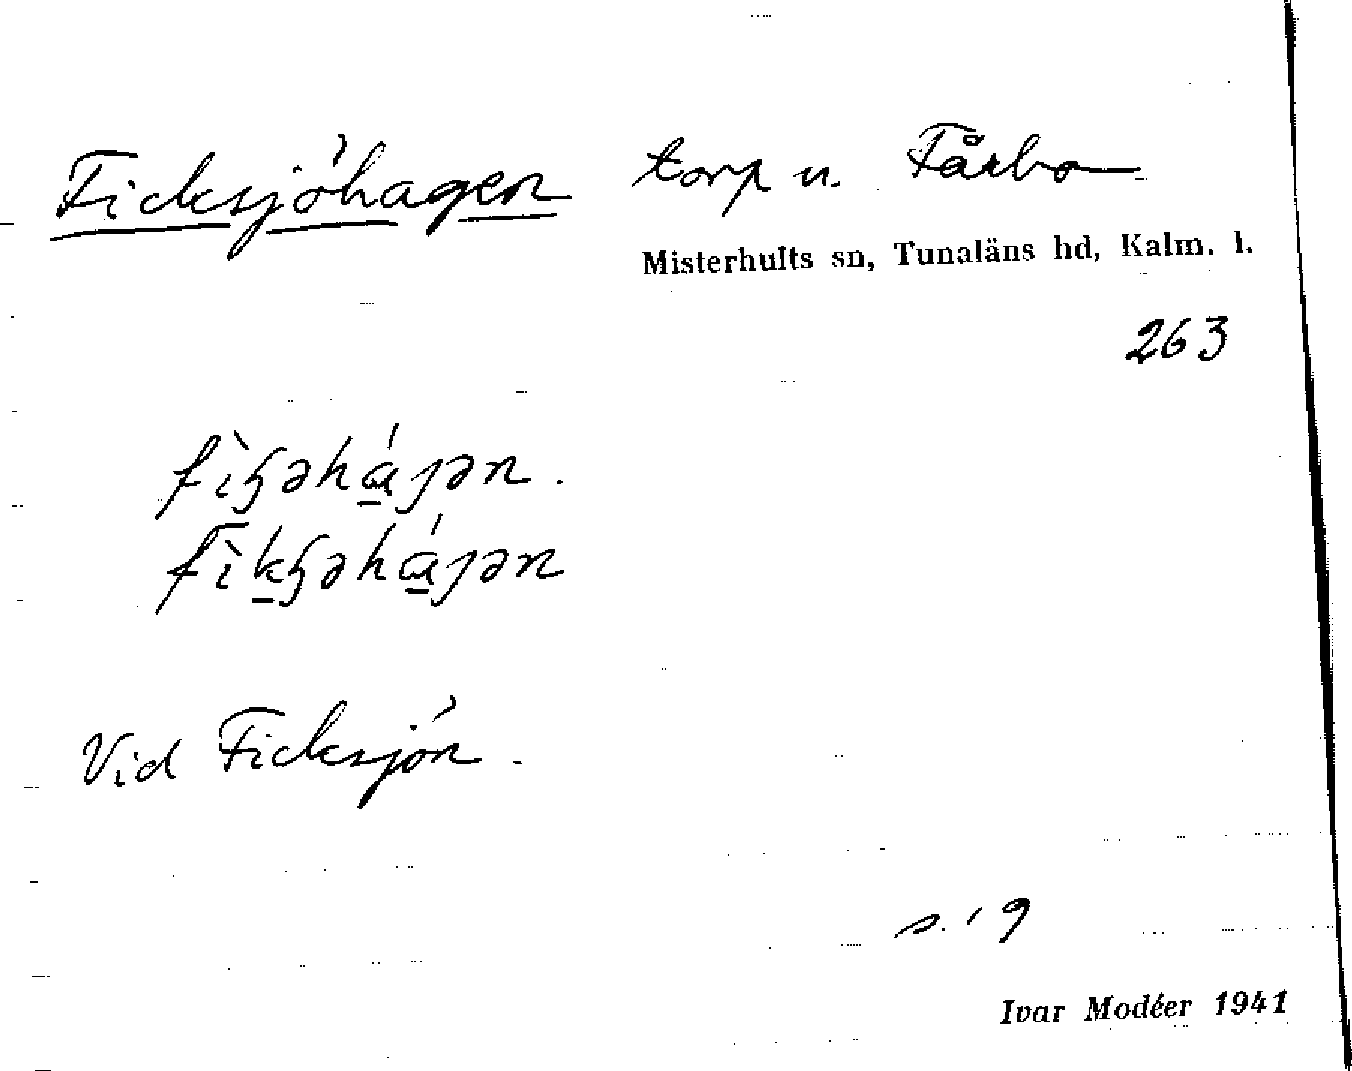 Ficksjöhagen torp u. Fårbo
Misterhults sn, Tunaläns hd, Kalm. l.
263
Vid Ficksjön.
s. 19
Ivar Modéer 1941